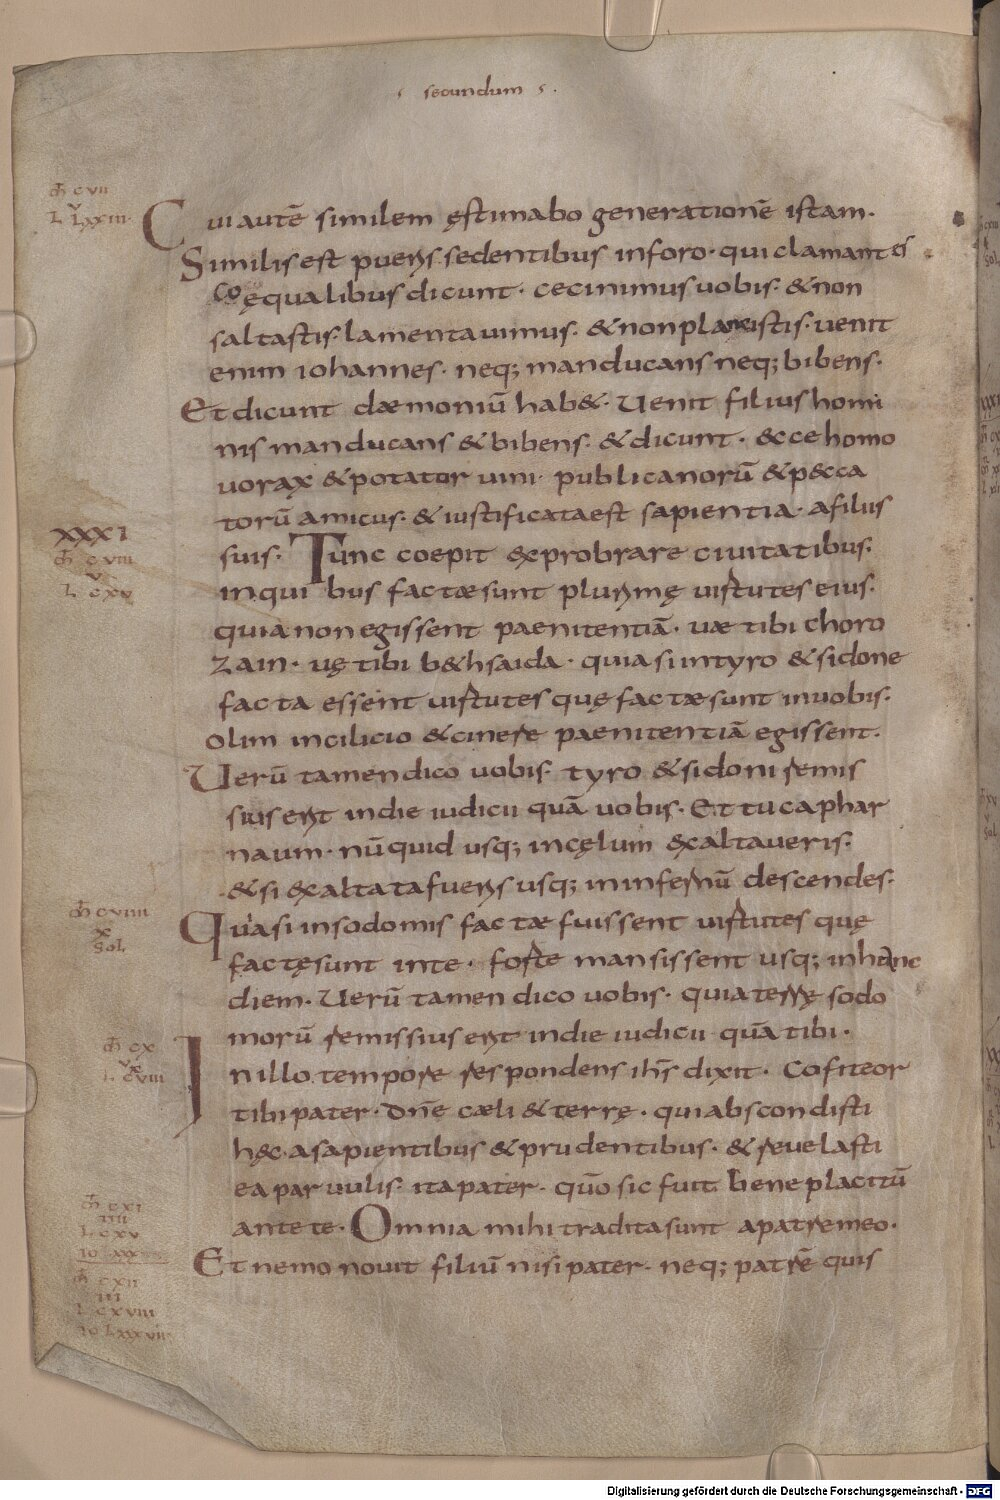 secundum
m̄ cvii
v
L Lxxiii
Cui autē similem ęstimabo generationē istam.
Similis est pueris sedentibus inforo· qui clamantes
coęqualibus dicunt· cecinimus uobis· & non
saltastis· lamentauimus· & non planxistis· uenit
enim iohannes· neq; manducans neq; bibens·
Et dicunt dæmoniū hab&· Uenit filius homi
nis manducans & bibens· & dicunt· & ce homo
uorax & potator uini· publicanorū & p&ca
torū amicus· & iustificata est sapientia· afiliis
XXXI
m̄ cviii
v
L cxv
suis· Tunc coepit exprobrare ciuitatibus·
inquibus factæ sunt plurimę uirtutes eius·
quia non egissent paenitentiā· uae tibi choro
zain· uę tibi b&hsaida· quia si intyro & sidone
facta essent uirtutes quę factæ sunt inuobis·
olim incilicio & cinere paenitentiā egissent·
Uerū tamen dico uobis· tyro & sidoni remis
sius erit indie iudicii quā uobis· Et tu caphar
naum· nūquid usq; incęlum exaltaueris·
& si exaltata fueris usq; ininfernū descendes·
m̄ cviiii
x
sol
Quasi insodomis factæ fuissent uirtutes quę
factę sunt inte· forte mansissent usq; inhanc
diem· Uerū tamen dico uobis· quia terrę sodo
morū remissius erit indie iudicii quā tibi·
m̄ cx
v
L cxviiii
Inillo tempore respondens ih̄s dixit· Cofiteor
tibi pater· dn̄e cæli & terrę· qui abscondisti
hęc asapientibus & prudentibus· & reuelasti
ea paruulis· ita pater· qūo sic fuit bene placitū
m̄ cxi
iiii
L cxv
ante te· Omnia mihi tradita sunt apatre meo·
Et nemo nouit filiū nisi pater· neq; patrē quis
m̄ cxii
iii
L cxviiii
io Lxxxvii
Digitalisierung gefördert durch die Deutsche Forschungsgemeinschaft - DFG